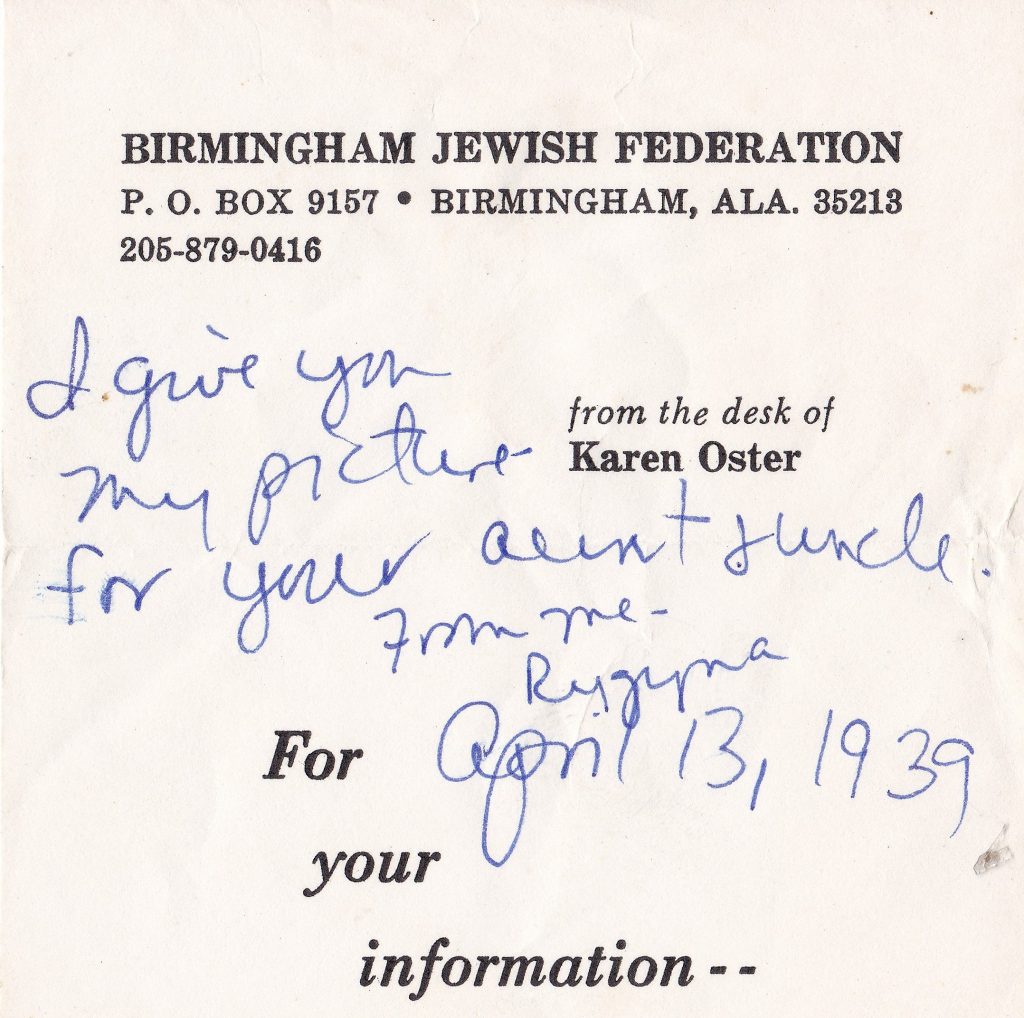 BIRMINGHAM JEWISH FEDERATION
P. O. BOX 9157 • BIRMINGHAM, ALA. 35213
205-879-0416
I give you
from the desk of
my picture
Karen Oster
for your aunt & uncle.
From me-
April 13, 1939
For
your
information--